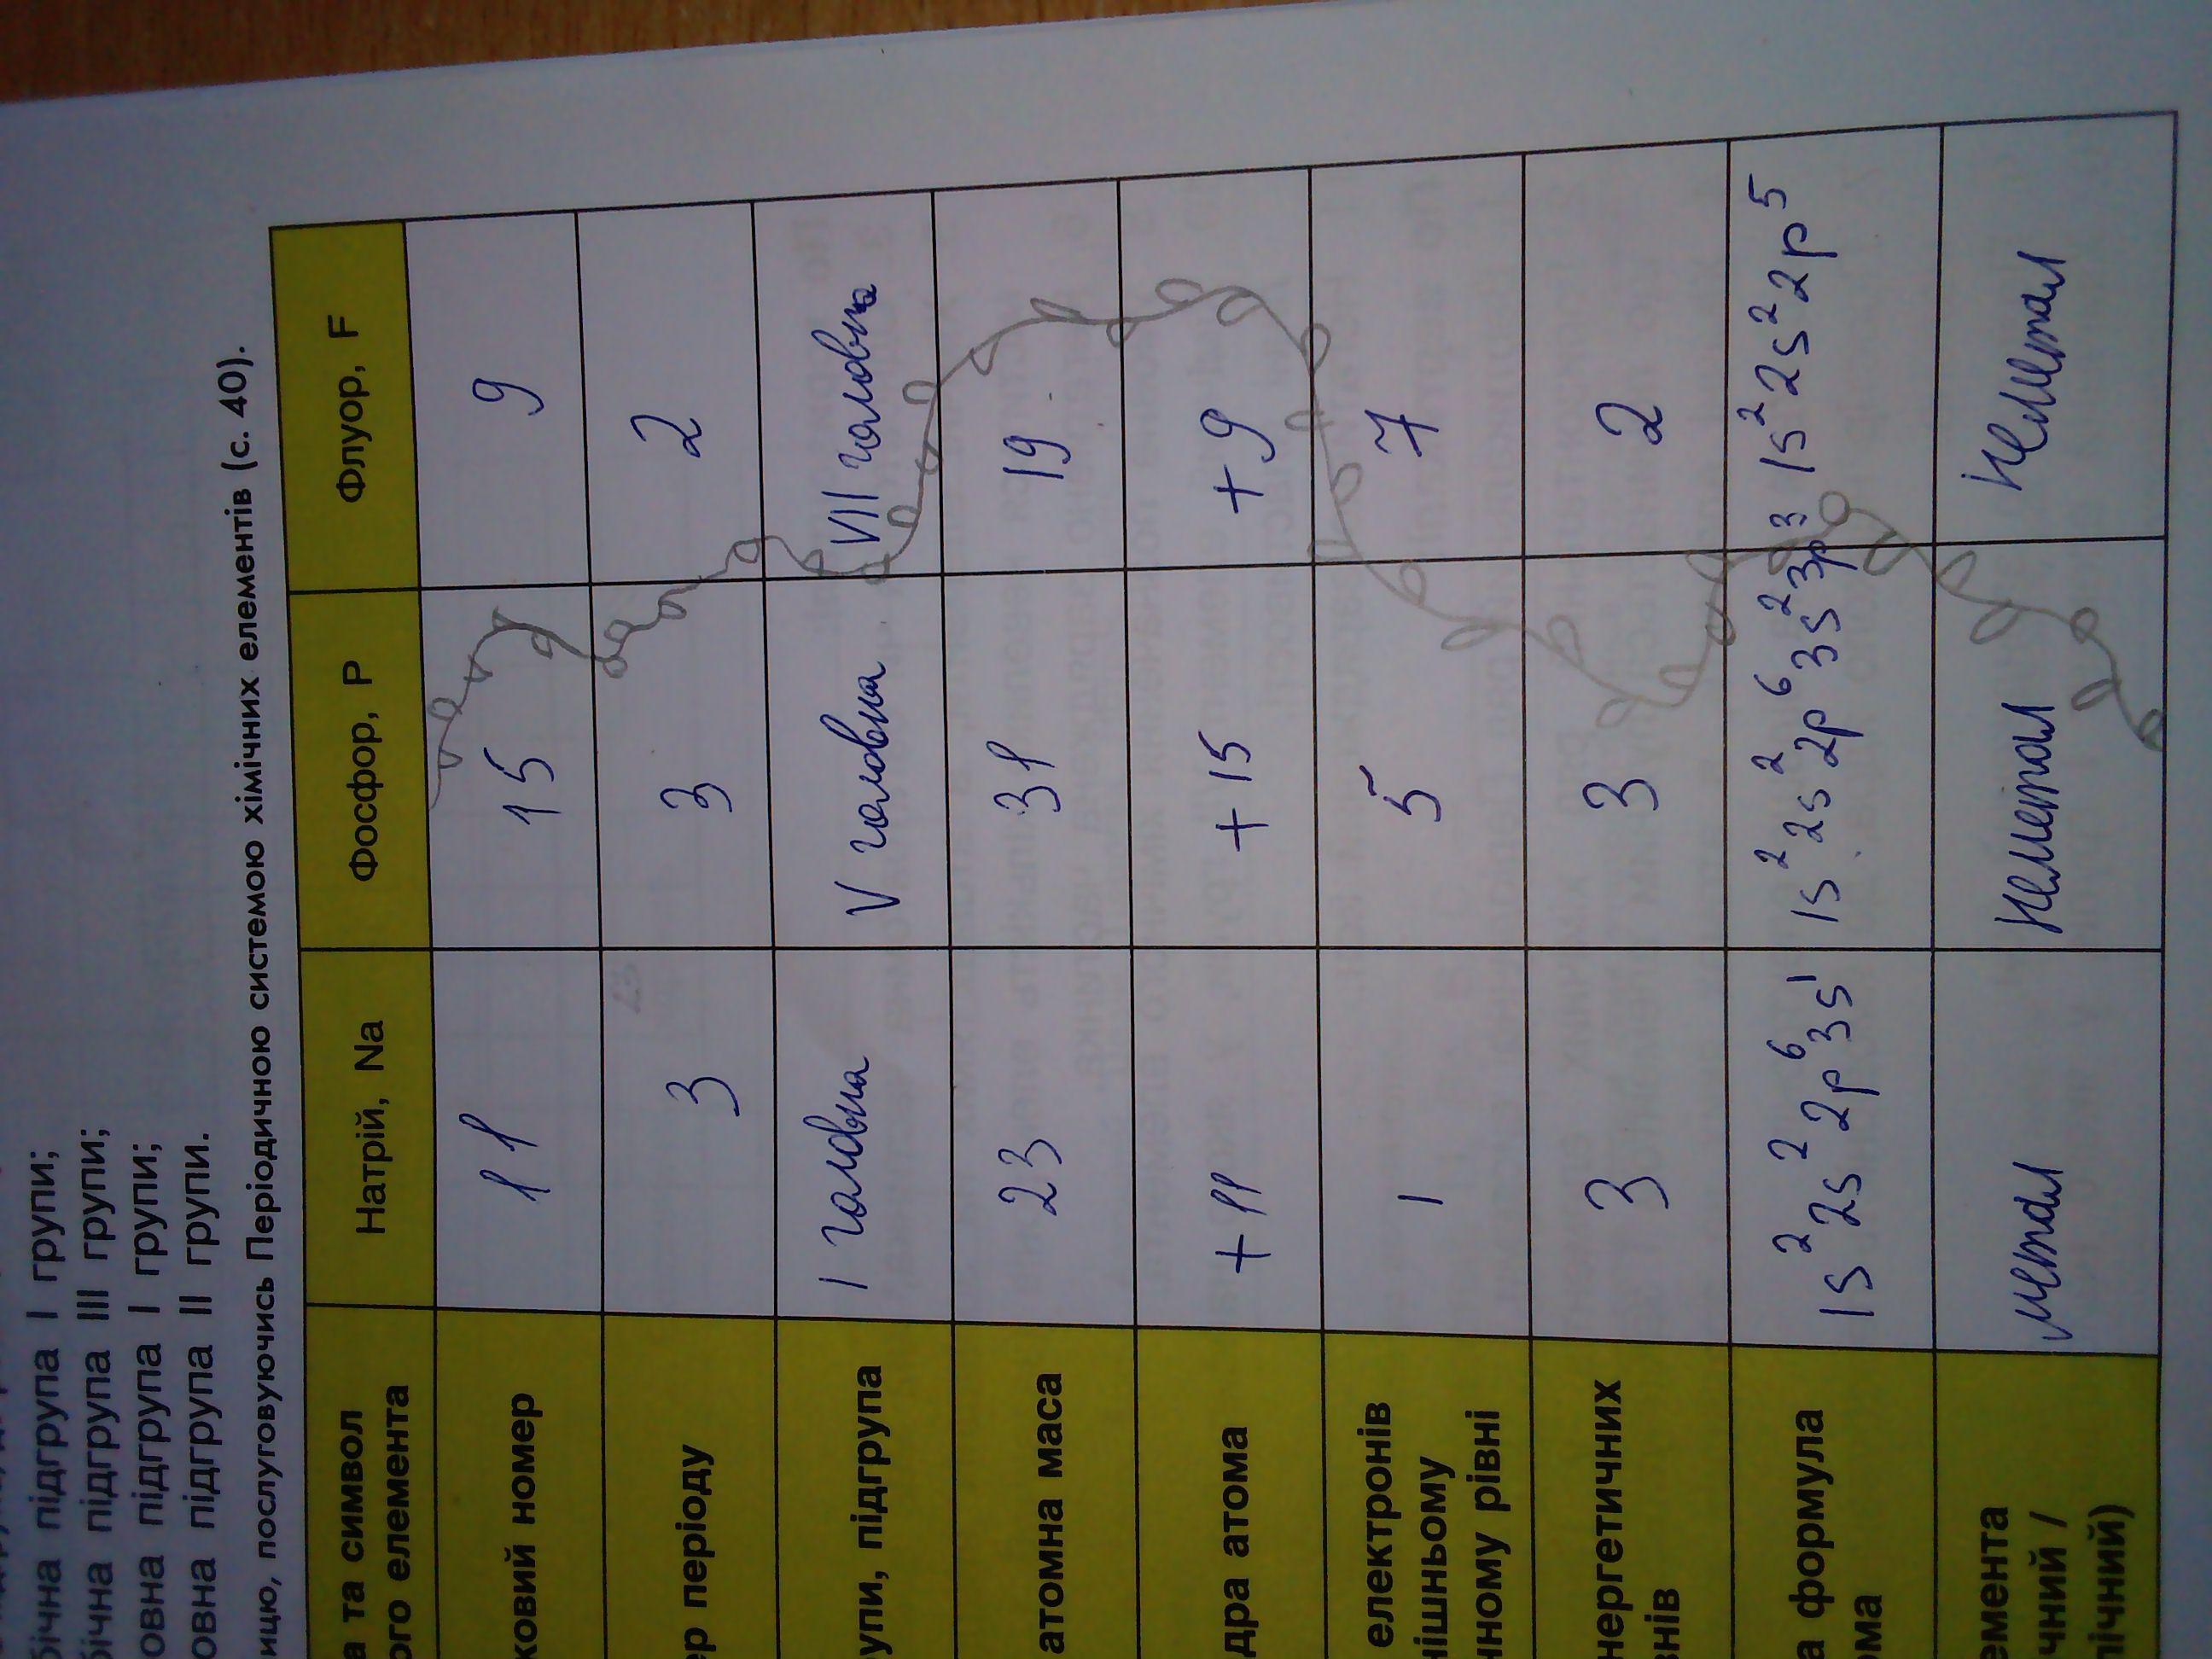 бічна підгрупа I групи;
бічна підгрупа III групи;
овна підгрупа I групи;
овна підгрупа II групи.
ицю, послуговуючись Періодичною системою хімічних елементів (с. 40).
а та символ
ого елемента
Натрій, Na
Фосфор, P
Флуор, F
ковий номер
11
15
9
ер періоду
3
3
2
упи, підгрупа
I головна
V головна
VII головна
атомна маса
23
31
19
дра атома
+11
+15
+9
електронів
нішньому
нному рівні
1
5
7
нергетичних
внів
3
3
2
а формула
ома
1s² 2s² 2p⁶ 3s¹
1s² 2s² 2p⁶ 3s² 3p³
1s² 2s² 2p⁵
емента
чний /
лічний)
метал
неметал
неметал